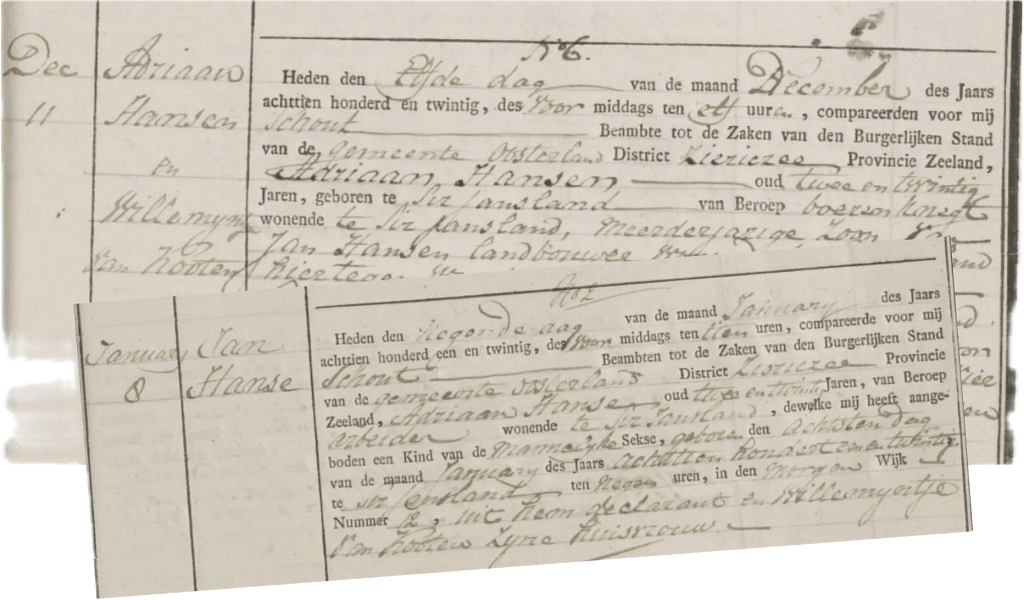 Dec
11
Adriaan
Hansen
en
Willemyntj
van Hooten
No 6.
Heden den Elfde dag van de maand December des Jaars
achttien honderd en twintig, des Voor middags ten elf uuren, compareerden voor mij
Schout Beambte tot de Zaken van den Burgerlijken Stand
van de gemeente Oosterland District Zierickzee Provincie Zeeland,
Adriaan Hansen oud twee en twintig
Jaren, geboren te Sir Jansland van Beroep boeren Knegt
wonende te Sir Jansland, Meerderjarige Zoon van
Jan Hansen landbouwer
hiertegen
January
8
Jan
Hanse
No 2
Heden den Negende dag van de maand January des Jaars
achttien honderd een en twintig, des Voor middags ten tien uren, compareerde voor mij
Schout Beambten tot de Zaken van den Burgerlijken Stand
van de gemeente Oosterland District Zierickzee Provincie
Zeeland, Adriaan Hanse oud twee en twintig Jaren, van Beroep
arbeider wonende te Sir Jansland, dewelke mij heeft aange-
boden een Kind van de Mannelyke Sekse, geboren den Achtsten dag
van de maand January des Jaars achttien hondert een en twintig
te Sir Jansland ten Negen uren, in den Morgen Wijk
Nummer 12, uit hem declarant en Willemyntje
Van Hooten Zyne huisvrouw